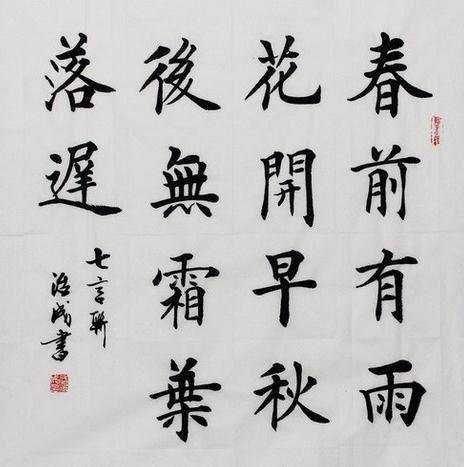 春前有雨
花開早秋
後無霜葉
落遲
七言聯
治成書